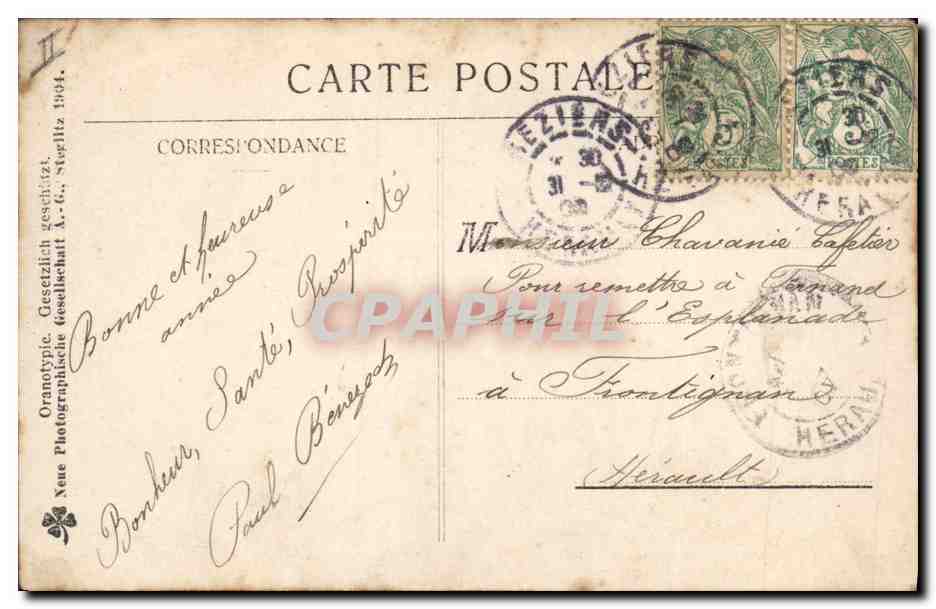 II
CARTE POSTALE
CORRESPONDANCE
Oranotypie. Gesetzlich geschützt.
Neue Photographische Gesellschaft A.-G., Steglitz 1904.
Bonne et heureuse
année
Bonheur, Santé, Prospérité
Paul Bénézech
BEZIERS
30
31
HERAULT
5
POSTES
5
POSTES
Monsieur Chavanié Cafetier
Pour remettre à Fernand
sur l'Esplanade
à Frontignan
Hérault
HERAULT
CPAPHIL